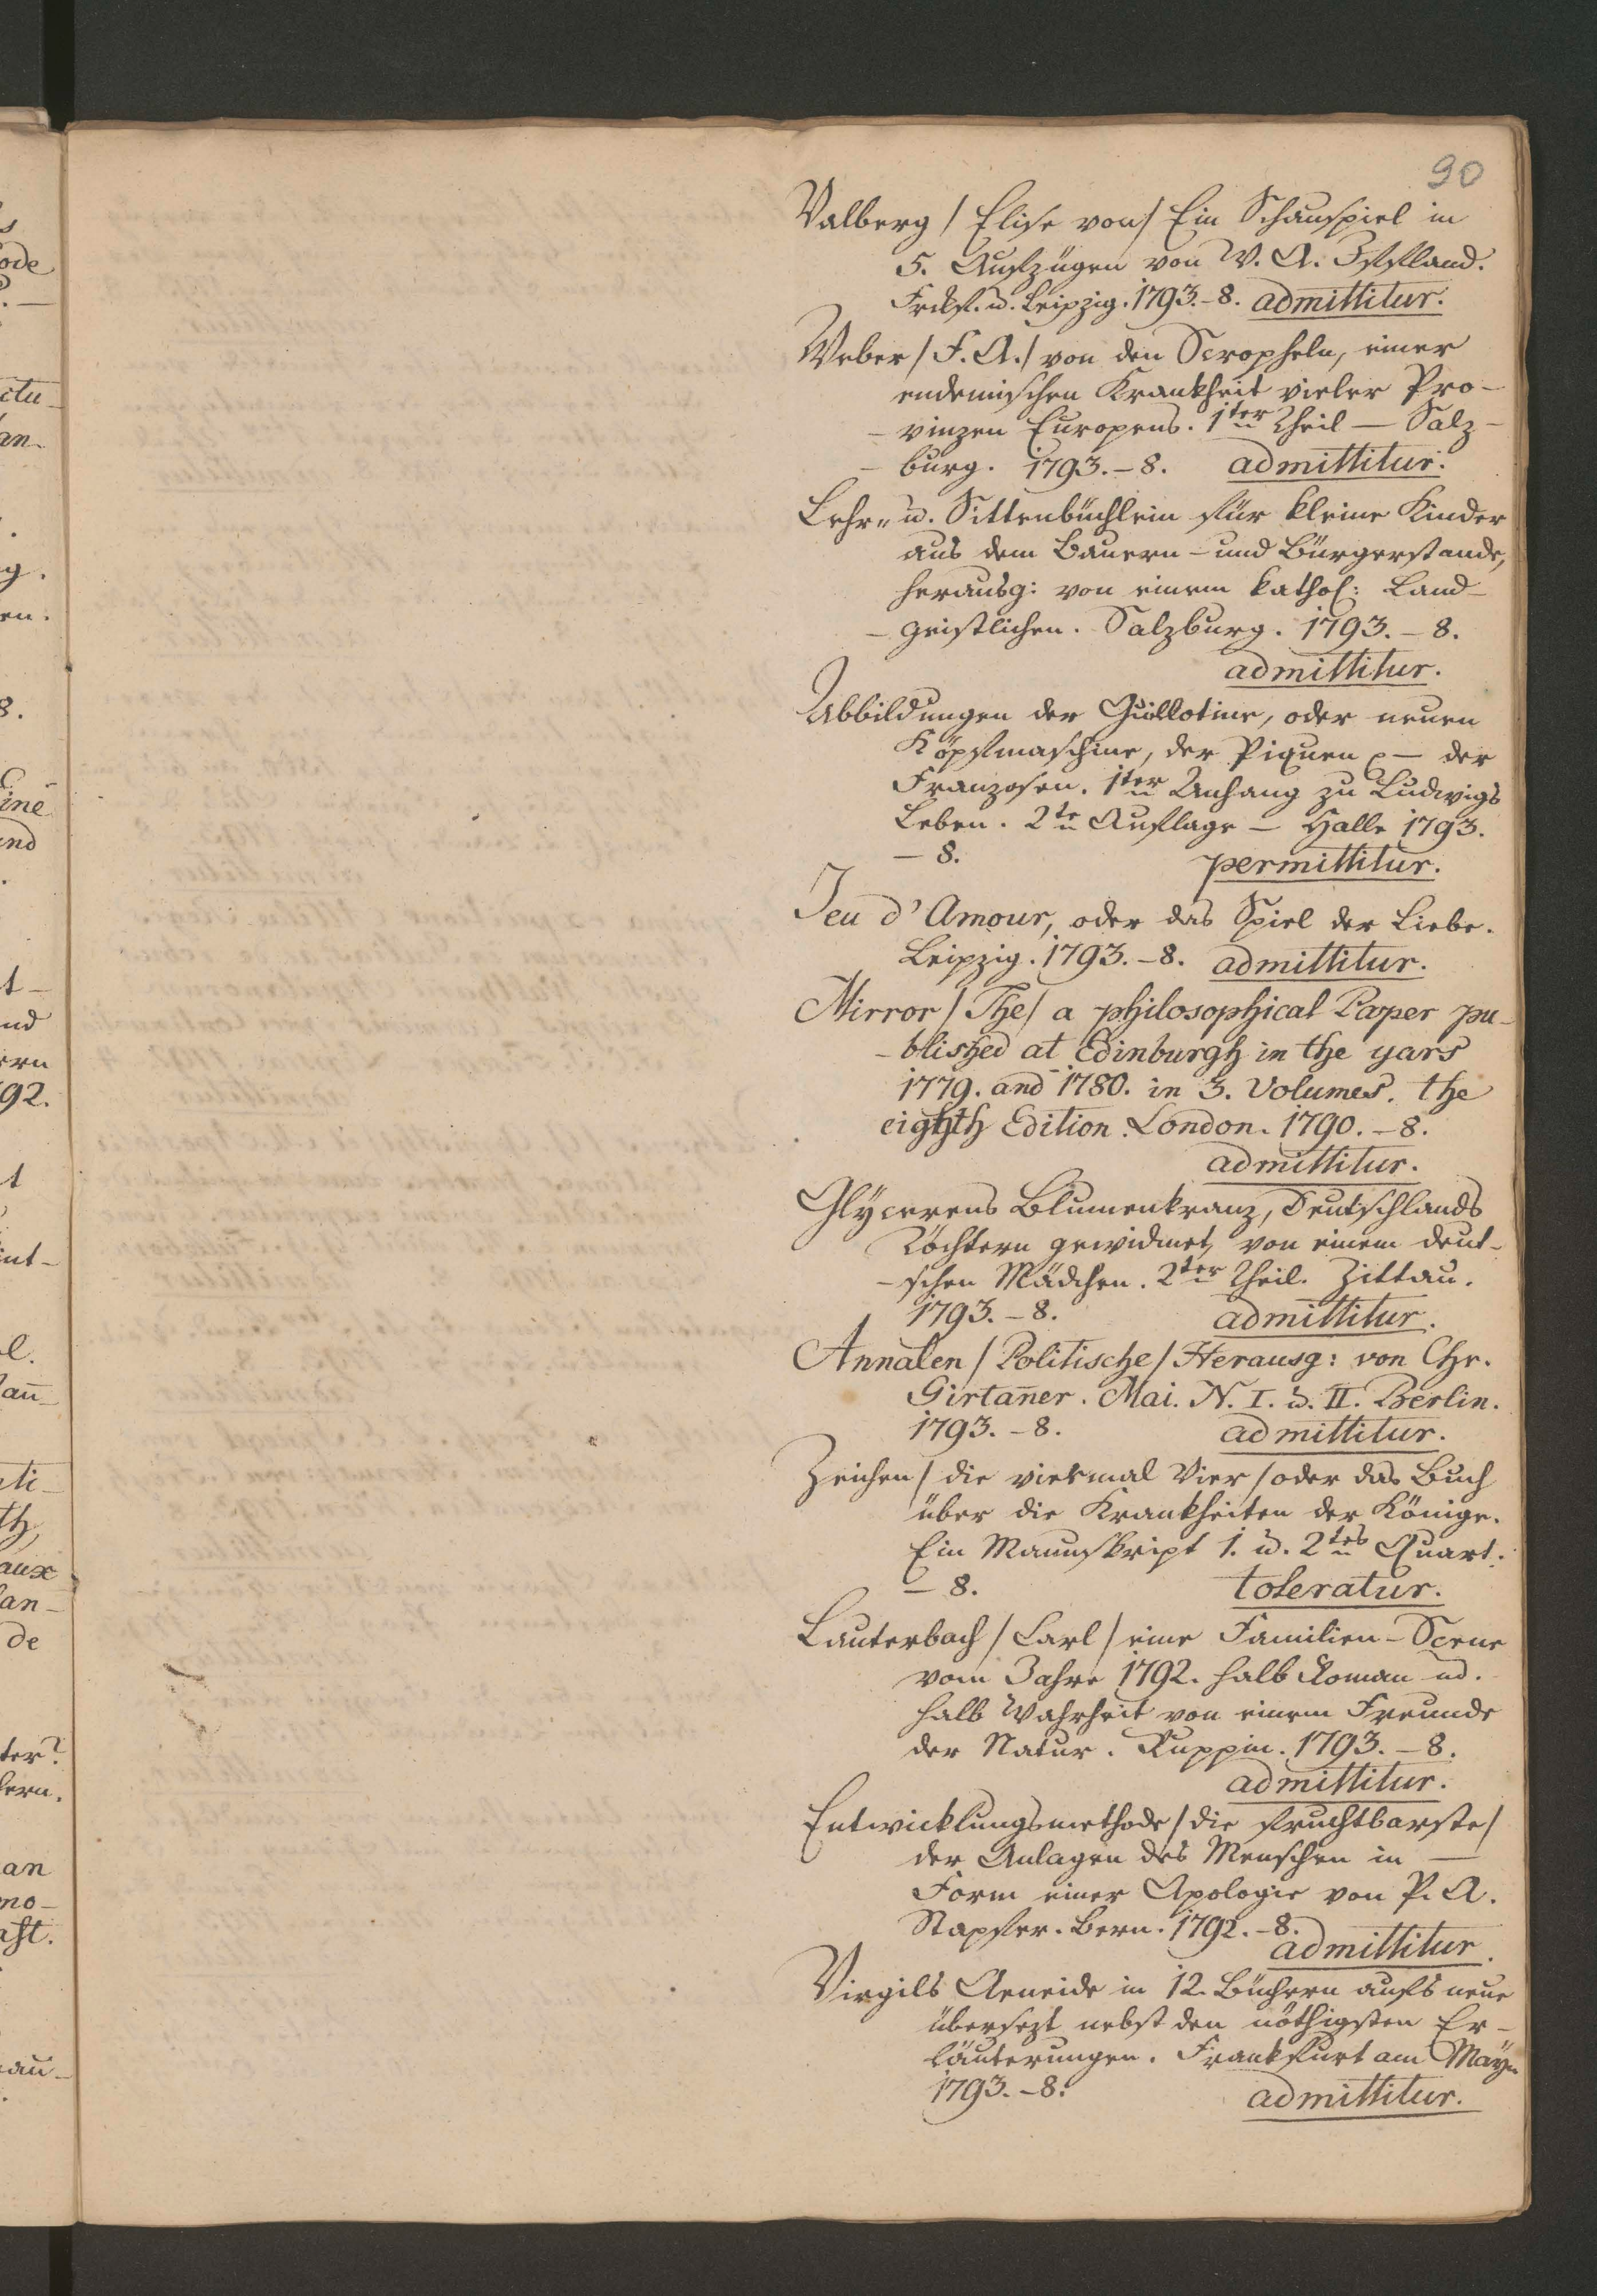 90
Valberg / Elise von / Ein Schauspiel in
5. Aufzügen von W. A. Iffland.
Frckf. u. Leipzig. 1793. – 8. admittitur.
Weber / F. A. / von den Scropheln, einer
endemischen Krankheit vieler Pro-
- vinzen Europens. 1ter Theil — Salz-
- burg. 1793. – 8. admittitur.
Lehr- u. Sittenbüchlein für kleine Kinder
aus dem Bauern- und Bürgerstande,
herausg: von einem kathol: Land-
- geistlichen. Salzburg. 1793. – 8.
admittitur.
Abbildungen der Guillotine, oder neuen
Köpfmaschine, der Piquen — der
Franzosen. 1ter Anhang zu Ludwigs
Leben. 2te Auflage — Halle 1793.
– 8. permittitur.
Jeu d'Amour, oder das Spiel der Liebe.
Leipzig. 1793. – 8. admittitur.
Mirror / The / a philosophical Paper pu-
- blished at Edinburgh in the yars
1779. and 1780. in 3. Volumes. the
eighth Edition. London. 1790. – 8.
admittitur.
Glÿcerens Blumenkranz, Deutschlands
Töchtern gewidmet, von einem deut-
- schen Mädchen. 2ter Theil. Zittau.
1793. – 8. admittitur.
Annalen / Politische / Herausg: von Chr.
Girtan̄er. Mai. N. I. u. II. Berlin.
1793. – 8. admittitur.
Zeichen / die viermal Vier / oder das Buch
über die Krankheiten der Könige.
Ein Manuskript 1. u. 2tes Quart.
– 8. toleratur.
Lauterbach / Carl / eine Familien-Scene
vom Jahre 1792. halb Roman ud.
halb Wahrheit von einem Freunde
der Natur. Ruppin. 1793. – 8.
admittitur.
Entwicklungsmethode / die fruchtbarste /
der Anlagen des Menschen in —
Form einer Apologie von P. A.
Stapfer. Bern. 1792. – 8.
admittitur.
Virgils Aeneide in 12. Büchern aufs neue
übersezt nebst den nöthigsten Er-
läuterungen. Frankfurt am Maÿn
1793. – 8. admittitur.